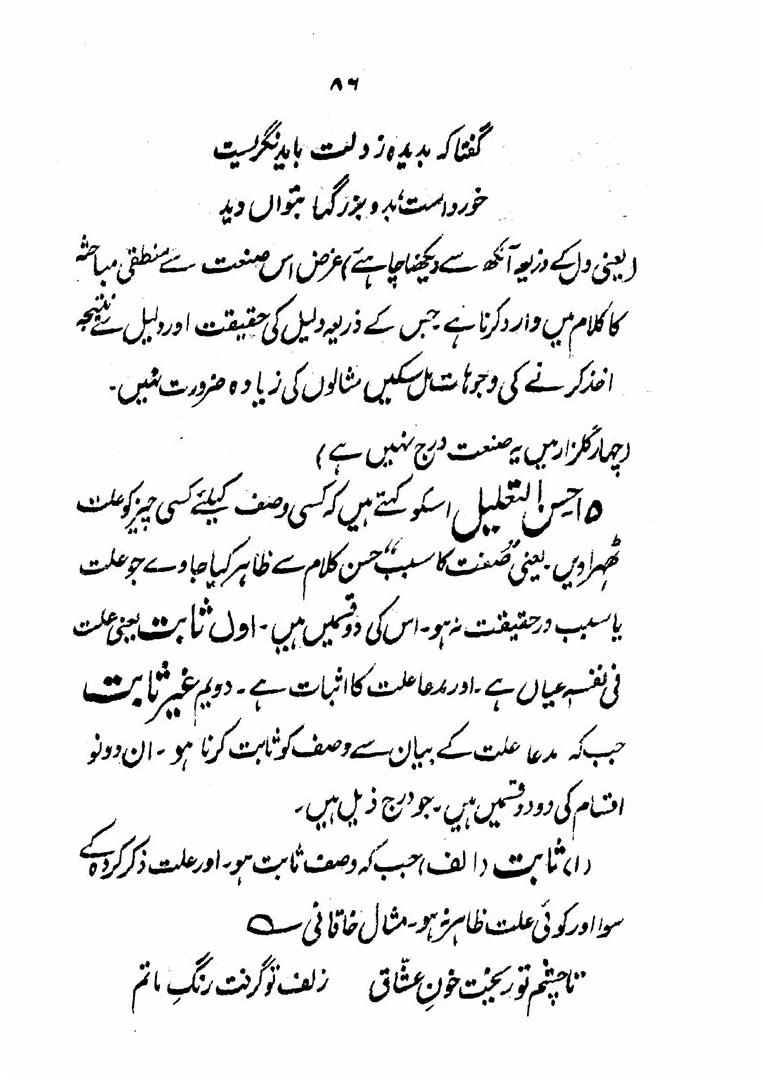 ۸۶
گفتا کہ بدیدہ ز دلت باید نگریست
خورد است؛ بد و بزرگہا بتواں دید
(یعنی دل کے ذریعہ آنکھ سے دیکھنا چاہئے) غرض اس صنعت سے منطقی مباحثہ
کا کلام میں وارد کرنا ہے جس کے ذریعہ دلیل کی حقیقت اور دلیل سے نتیجہ
اخذ کرنے کی وجوہات مل سکیں مثالوں کی زیادہ ضرورت نہیں۔
(چہار گلزار میں یہ صنعت درج نہیں ہے)
۵ احسن التعلیل اسکو کہتے ہیں کہ کسی وصف کیلئے کسی چیز کو علت
ٹھہراویں۔ یعنی "صنعت کا سبب" حسن کلام سے ظاہر کیا جاوے جو علت
یا سبب درحقیقت نہ ہو۔ اس کی دو قسمیں ہیں۔ اول ثابت یعنی علت
فی نفسہٖ عیاں ہے۔ اور مدعا علت کا اثبات ہے۔ دویم غیر ثابت
جب کہ مدعا علت کے بیان سے وصف کو ثابت کرنا ہو۔ ان دونو
اقسام کی دو دو قسمیں ہیں۔ جو درج ذیل ہیں۔
(۱) ثابت (الف) جب کہ وصف ثابت ہو۔ اور علت ذکر کردہ کے
سوا اور کوئی علت ظاہر نہ ہو۔ مثال خاقانی ؎
تا چشم تو ریخت خونِ عشّاق زلف تو گرفت رنگِ ماتم